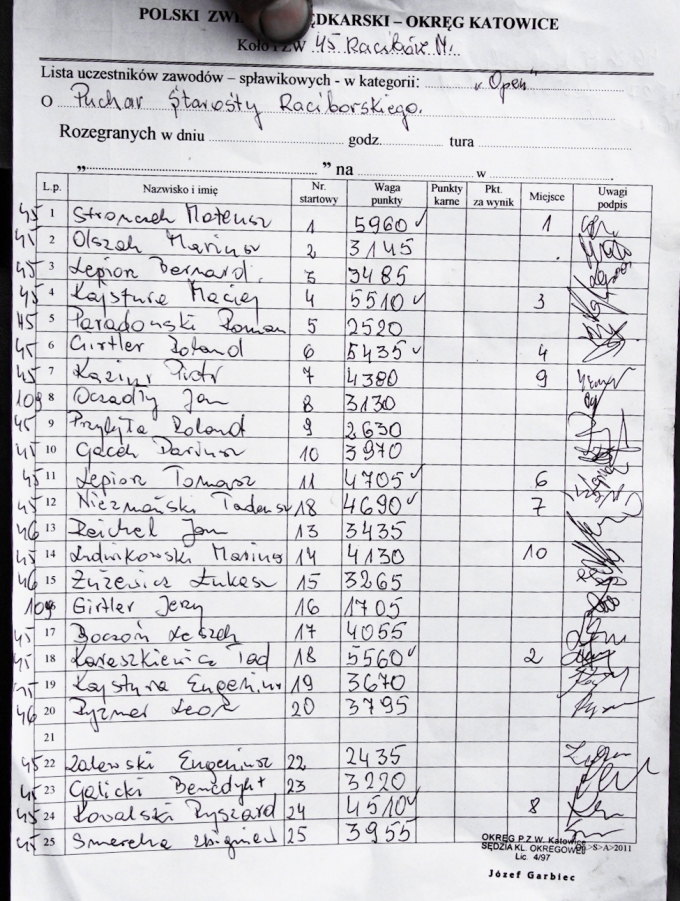 POLSKI ĘDKARSKI – OKRĘG KATOWICE
Koło PZW 45 Racibórz M.
Lista uczestników zawodów – spławikowych - w kategorii: „Open"
O Puchar Starosty Raciborskiego.
Rozegranych w dniu godz. tura
„ ” na w
L.p. Nazwisko i imię Nr. startowy Waga punkty Punkty karne Pkt. za wynik Miejsce Uwagi podpis
45 1 Mateusz 1 5960 1
45 2 Olszak Mariusz 2 3145
45 3 Lepior Bernard. 3 3485
45 4 Kajstura Maciej 4 5510 3
45 5 Paradowski Roman 5 2520
45 6 Girtler Roland 6 5435 4
45 7 Kazimir Piotr 7 4380 9
109 8 Ocadły Jan 8 3130
45 9 Przybyła Roland 9 2630
45 10 Gacek Dariusz 10 3970
45 11 Lepior Tomasz 11 4705 6
45 12 Tadeusz 18 4690 7
46 13 Reichel Jan 13 3435
45 14 Ludwikowski Mariusz 14 4130 10
46 15 Łukasz 15 3265
109 Girtler Jerzy 16 1705
45 17 Boczoń Leszek 17 4055
45 18 Karaszkiewicz Tad 18 5560 2
45 19 Kajstura Eugeniusz 19 3670
46 20 Ryzner 20 3795
21
45 22 Zalewski Eugeniusz 22 2435
45 23 Galicki Benedykt 23 3220
45 24 Kowalski Ryszard 24 4510 8
45 25 Smereka Zbigniew 25 3955
OKRĘG P.Z.W. Katowice
SĘDZIA KL. OKRĘGOWEJ >S>A>2011
Lic. 4/97
Józef Garbiec